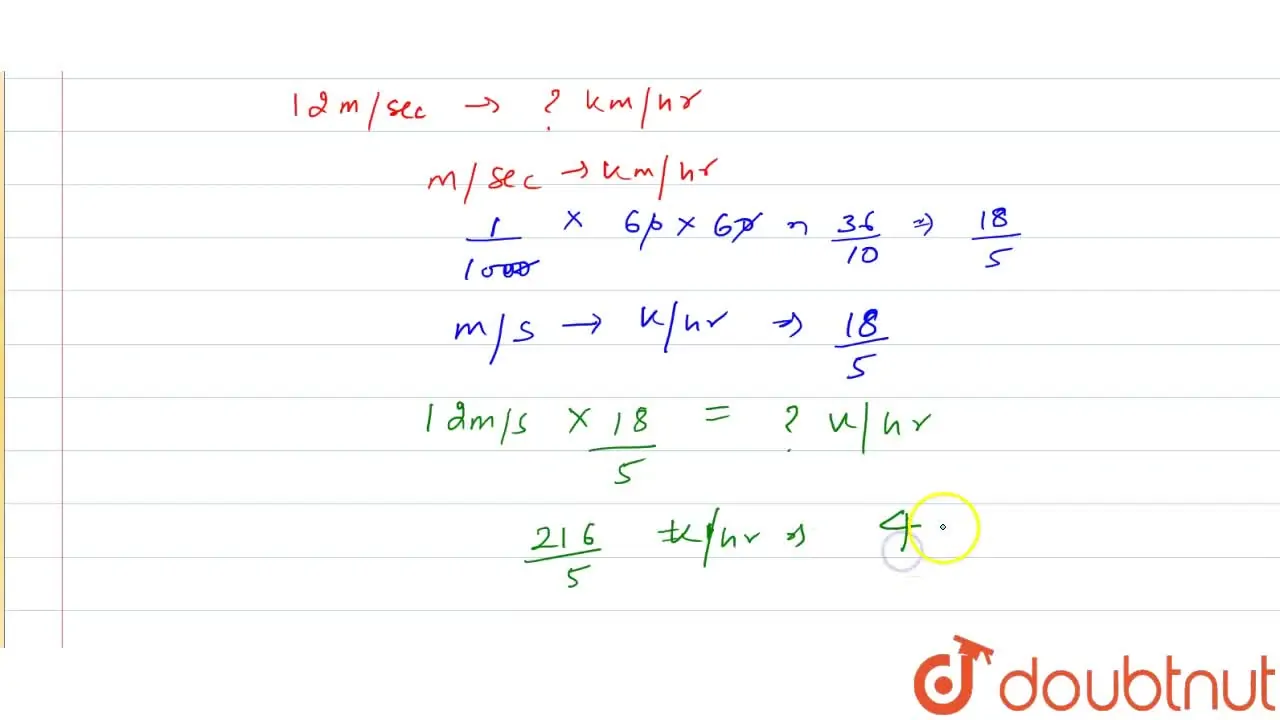 12m/sec → ? km/hr
m/sec → km/hr
1/1000 × 60 × 60 ⇒ 36/10 ⇒ 18/5
m/s → k/hr ⇒ 18/5
12m/s × 18/5 = ? k/hr
216/5 k/hr ⇒ 4
doubtnut